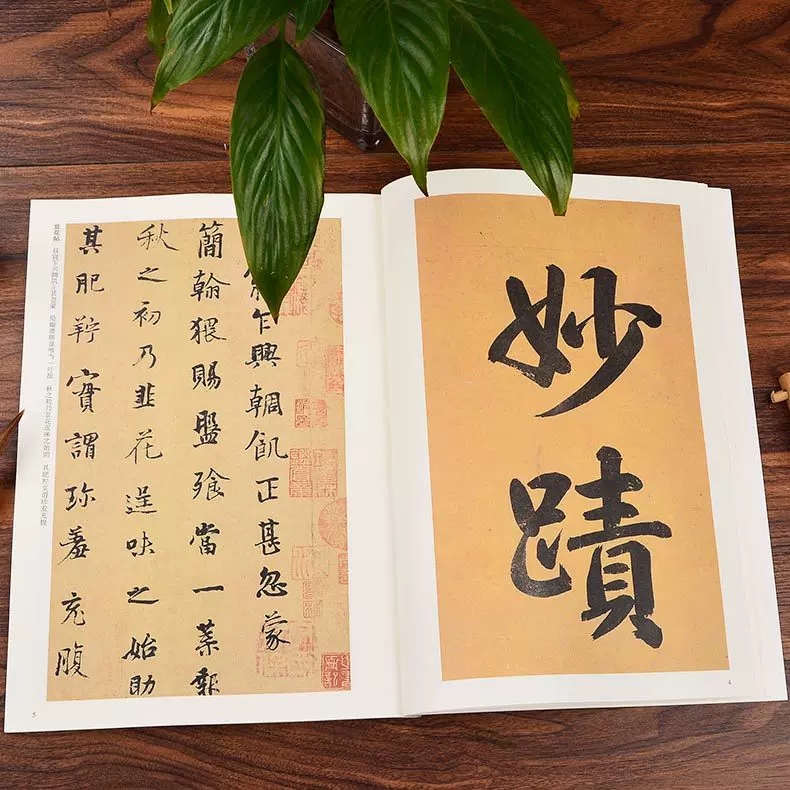 妙蹟
4
乍興輖飢正甚忽蒙
簡翰猥賜盤飧當一葉報
秋之初乃韭花逞味之始助
其肥羜實謂珍羞充腹
5